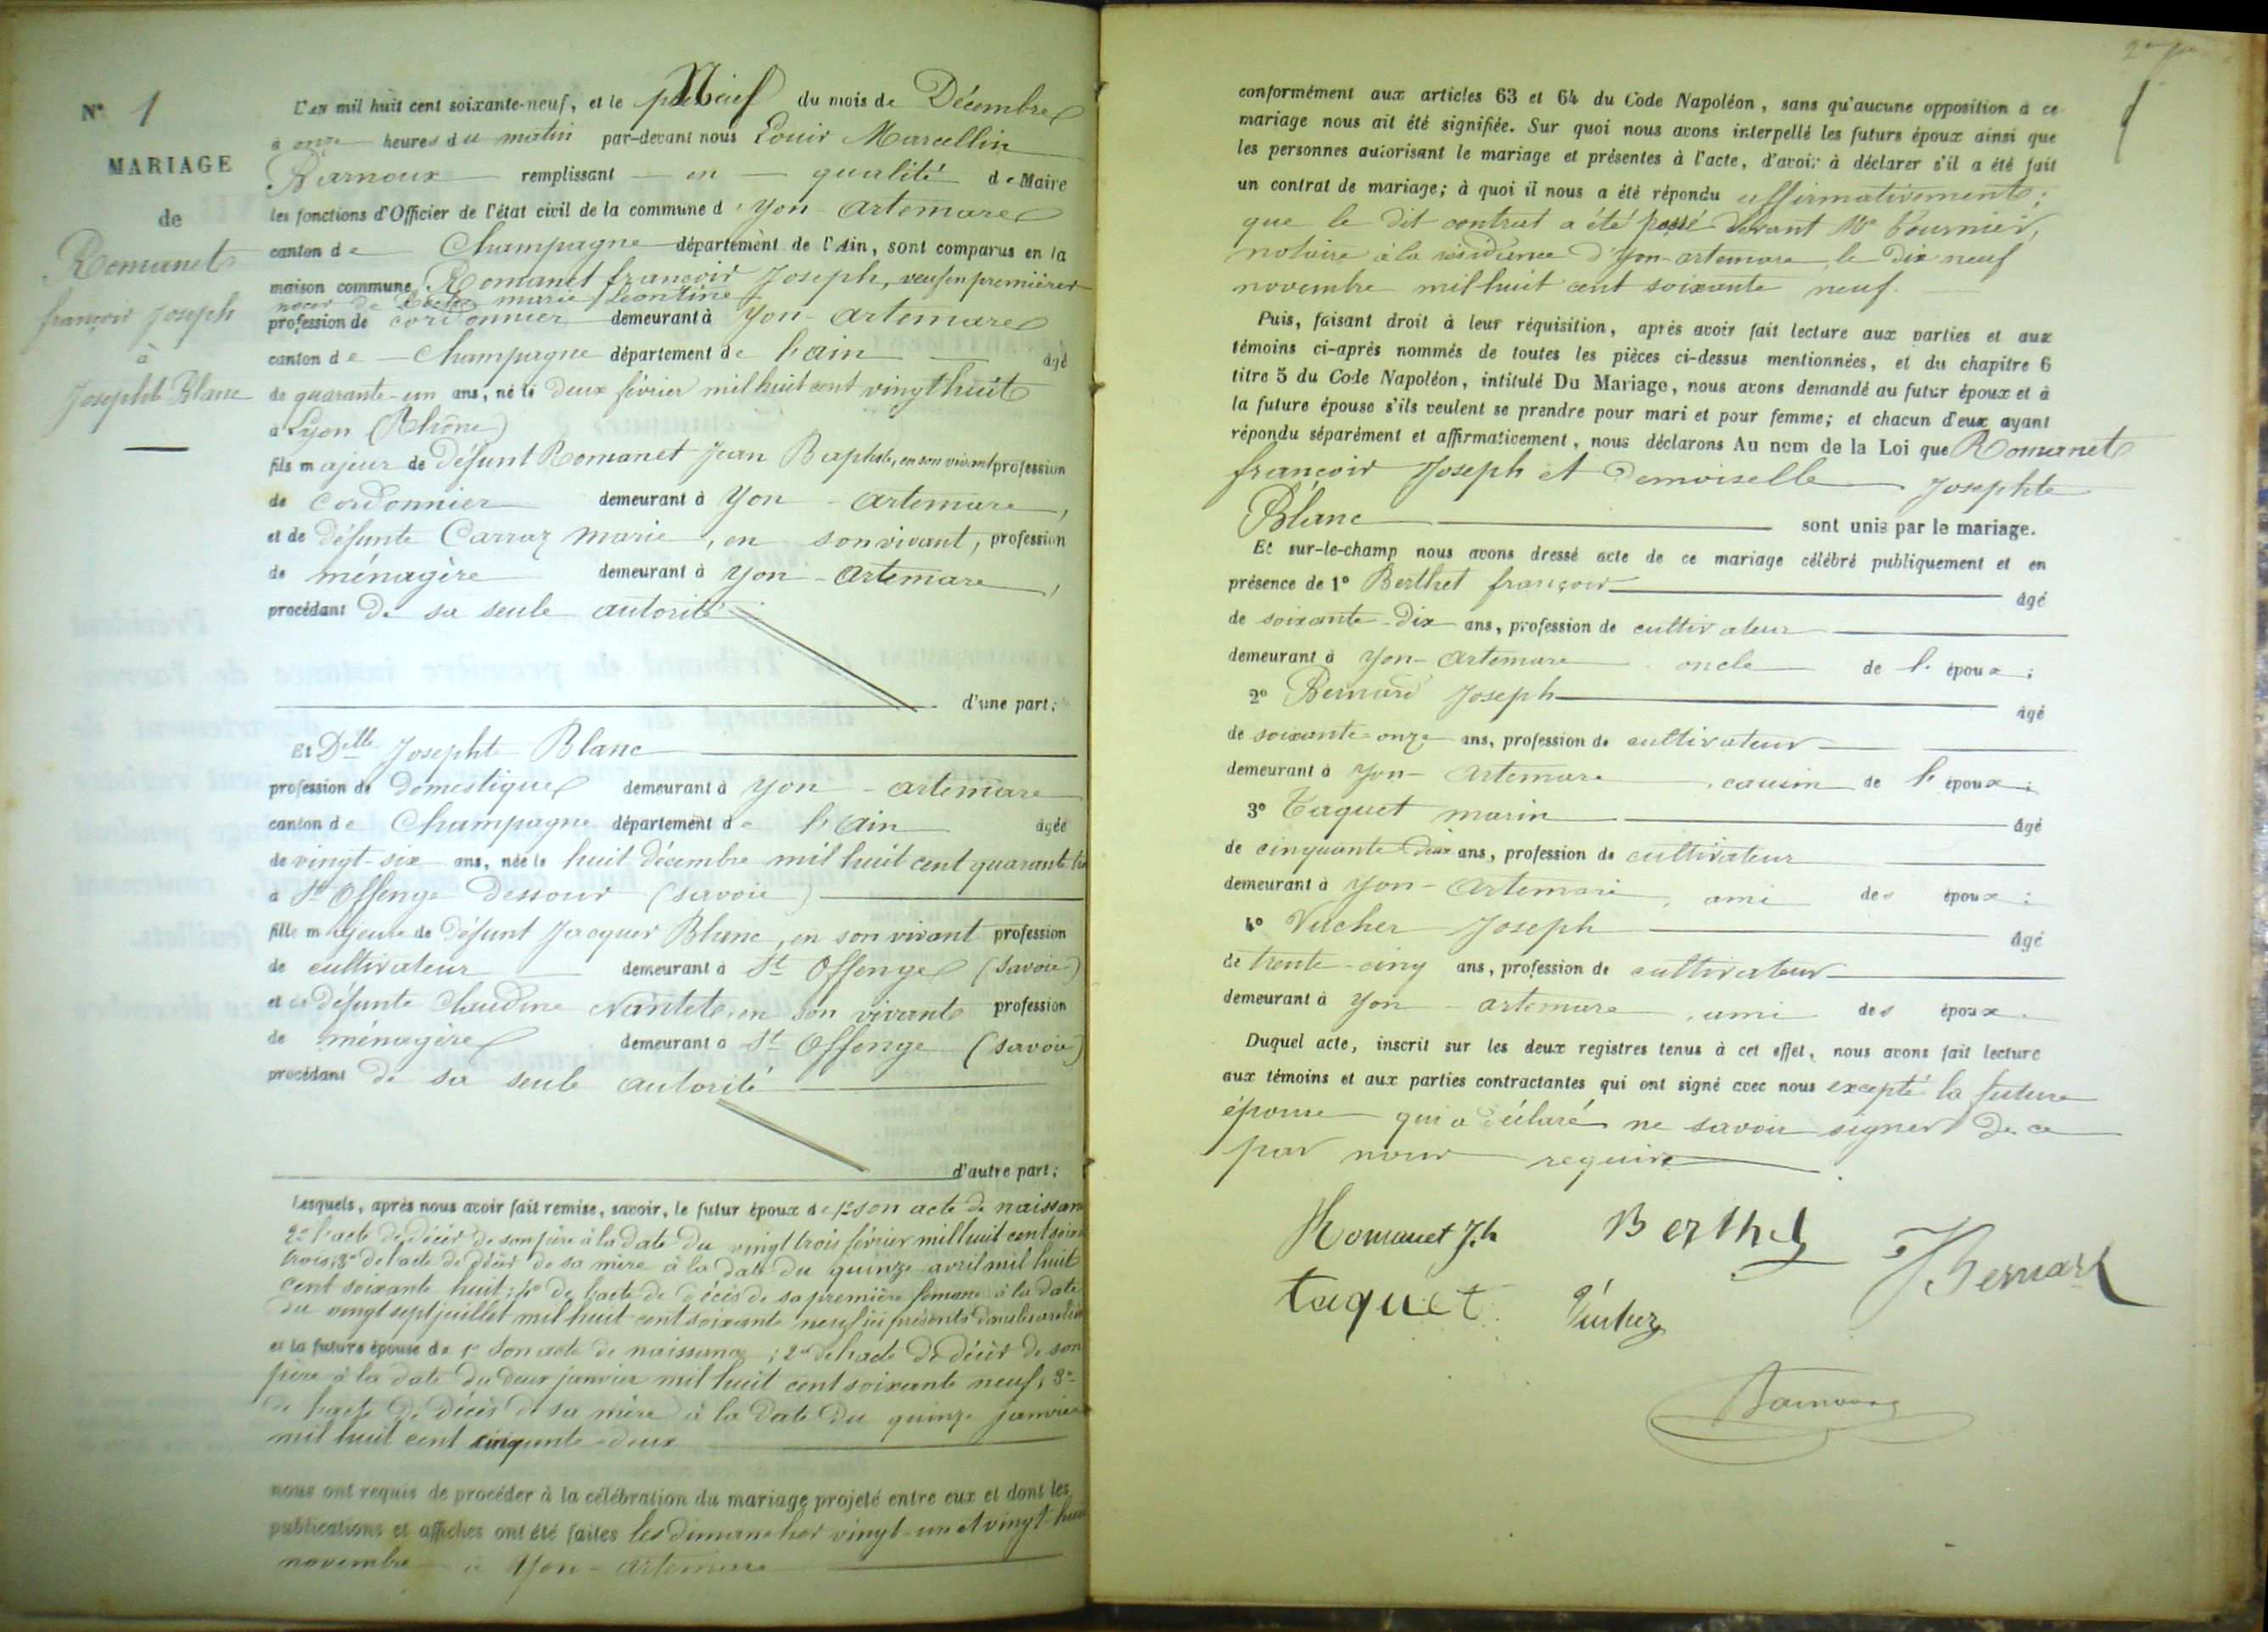 N° 1
MARIAGE
de
Romanet
françois Joseph
à
Josephte Blanc
L'an mil huit cent soixante-neuf, et le Neuf du mois de Décembre
à onze heures du matin par-devant nous Louis Marcellin
Barnoux remplissant en qualité de Maire
les fonctions d'Officier de l'état civil de la commune d'Yon-Artemare
canton de Champagne département de l'Ain, sont comparus en la
maison commune Romanet françois Joseph, veuf en premières
noces de marie Léontine
profession de cordonnier demeurant à Yon-Artemare
canton de Champagne département de l'ain âgé
de quarante-un ans, né le deux février mil huit cent vingt huit
à Lyon (Rhône)
fils majeur de défunt Romanet Jean Baptiste, en son vivant profession
de cordonnier demeurant à Yon-Artemare,
et de défunte Carraz marie, en son vivant, profession
de ménagère demeurant à Yon-Artemare,
procédant de sa seule autorité
d'une part;
Et Delle Josephte Blanc
profession de domestique demeurant à Yon-artemare
canton de Champagne département de l'Ain âgée
de vingt-six ans, née le huit décembre mil huit cent quarante
à St Offenge Dessous (savoie)
fille majeure de défunt Jacques Blanc, en son vivant profession
de cultivateur demeurant à St Offenge (Savoie)
et de défunte Claudine Nantet, en son vivant profession
de ménagère demeurant à St Offenge (savoie)
procédant de sa seule autorité
d'autre part;
Lesquels, après nous avoir fait remise, savoir, le futur époux de 1° son acte de naissan
2° l'acte de décès de son père à la date du vingt trois février mil huit cent soixa
trois; 3° de l'acte de décès de sa mère à la date du quinze avril mil huit
cent soixante huit; 4° de l'acte de décès de sa première femme à la date
du vingt sept juillet mil huit cent soixante neuf ici présents
et la future épouse de 1° son acte de naissance; 2° de l'acte de décès de son
père à la date du deux janvier mil huit cent soixante neuf; 3°
de l'acte de décès de sa mère à la date du quinze janvier
mil huit cent cinquante-deux
nous ont requis de procéder à la célébration du mariage projeté entre eux et dont les
publications et affiches ont été faites les dimanches vingt-un et vingt-huit
novembre à Yon-Artemare
conformément aux articles 63 et 64 du Code Napoléon, sans qu'aucune opposition à ce
mariage nous ait été signifiée. Sur quoi nous avons interpellé les futurs époux ainsi que
les personnes autorisant le mariage et présentes à l'acte, d'avoir à déclarer s'il a été fait
un contrat de mariage; à quoi il nous a été répondu affirmativement;
que le dit contrat a été passé devant Me Fournier,
notaire à la résidence d'Yon-artemare le dix neuf
novembre mil huit cent soixante neuf.
Puis, faisant droit à leur réquisition, après avoir fait lecture aux parties et aux
témoins ci-après nommés de toutes les pièces ci-dessus mentionnées, et du chapitre 6
titre 5 du Code Napoléon, intitulé Du Mariage, nous avons demandé au futur époux et à
la future épouse s'ils veulent se prendre pour mari et pour femme; et chacun d'eux ayant
répondu séparément et affirmativement, nous déclarons Au nom de la Loi que Romanet
françois Joseph et Demoiselle Josephte
Blanc sont unis par le mariage.
Et sur-le-champ nous avons dressé acte de ce mariage célébré publiquement et en
présence de 1° Berthet françois âgé
de soixante-dix ans, profession de cultivateur
demeurant à Yon-Artemare oncle de l'époux;
2° Bernard Joseph âgé
de soixante-onze ans, profession de cultivateur
demeurant à Yon-Artemare, cousin de l'époux;
3° Taquet marin âgé
de cinquante deux ans, profession de cultivateur
demeurant à Yon-Artemare, ami des époux;
4° Vucher Joseph âgé
de trente-cinq ans, profession de cultivateur
demeurant à Yon-artemare, ami des époux.
Duquel acte, inscrit sur les deux registres tenus à cet effet, nous avons fait lecture
aux témoins et aux parties contractantes qui ont signé avec nous excepté la future
épouse qui a déclaré ne savoir signer de ce
par nous requise.
Romanet Jh Berthet JBernard
taquet
Barnoux